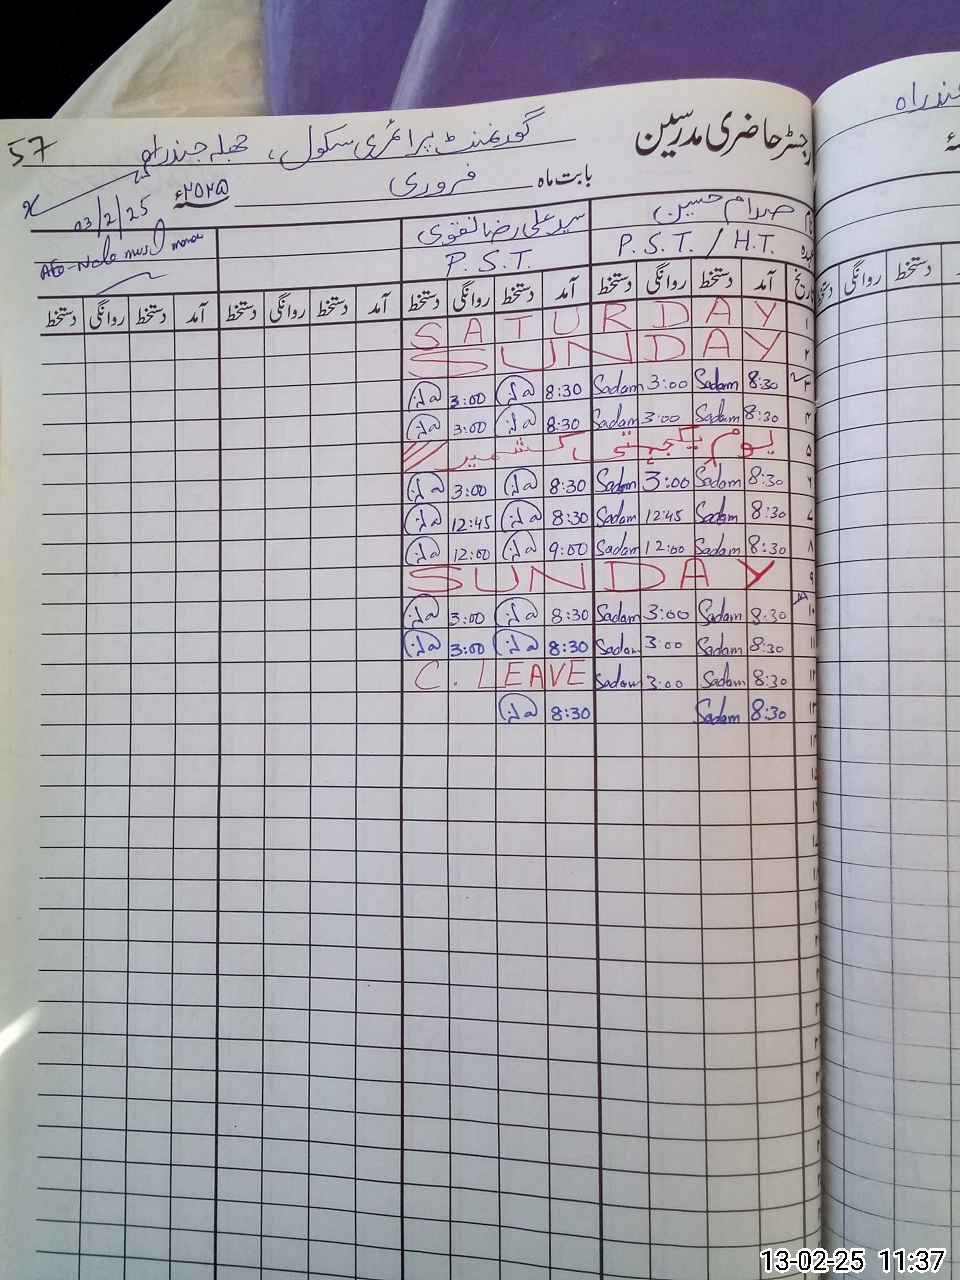 رجسٹر حاضری مدرسین گورنمنٹ پرائمری سکول، جھلہ جندراہ 57
بابت ماہ فروری ۲۰۲۵ء
03/2/25
صدام حسین سید علی رضا نقوی
P.S.T. / H.T. P.S.T.
تاریخ آمد دستخط روانگی دستخط آمد دستخط روانگی دستخط آمد دستخط روانگی دستخط آمد دستخط روانگی دستخط
۱ SATURDAY
۲ SUNDAY
۳ 8:30 Sadam 3:00 Sadam 8:30 3:00
۴ 8:30 Sadam 3:00 Sadam 8:30 3:00
۵ یوم یکجہتی کشمیر
۶ 8:30 Sadam 3:00 Sadam 8:30 3:00
۷ 8:30 Sadam 12:45 Sadam 8:30 12:45
۸ 8:30 Sadam 12:00 Sadam 9:00 12:00
۹ SUNDAY
۱۰ 8:30 Sadam 3:00 Sadam 8:30 3:00
۱۱ 8:30 Sadam 3:00 Sadam 8:30 3:00
۱۲ 8:30 Sadam 3:00 Sadam C. LEAVE
۱۳ 8:30 Sadam 8:30
دستخط روانگی
13-02-25 11:37